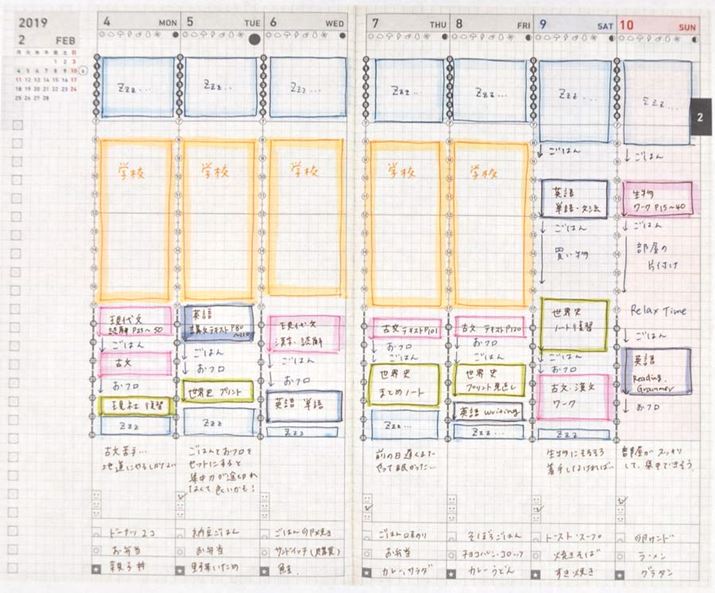 2019
2 FEB
月 火 水 木 金 土 日
1 2 3
4 5 6 7 8 9 10
11 12 13 14 15 16 17
18 19 20 21 22 23 24
25 26 27 28
4 MON
Zzz...
学校
現代文
読解 P25～30
ごはん
古文
おフロ
復習
Zzz
古文苦手...
ドーナツ2コ
お弁当
5 TUE
Zzz...
学校
英語
ごはん
おフロ
世界史 プリント
Zzz
ごはんとおフロを
セットにすると
集中力が途切れ
なくて良いかも!
納豆ごはん
お弁当
野菜いため
6 WED
Zzz...
学校
現代文
漢字、読解
ごはん
おフロ
英語 単語
Zzz
ごはん 卵焼き
サンドイッチ(購買)
7 THU
Zzz...
学校
古文 テキストP101
おフロ
ごはん
世界史
まとめノート
Zzz...
前の日遅くまで
やって眠かった...
お弁当
カレー、サラダ
8 FRI
Zzz...
学校
古文 テキストP120
おフロ
ごはん
世界史
プリント見直し
英語 writing
Zzz...
そぼろごはん
チョコパン・コロッケ
カレーうどん
9 SAT
Zzz...
ごはん
英語
単語・文法
ごはん
買い物
世界史
ノート復習
ごはん
おフロ
古文・漢文
ワーク
Zzz
生物にもそろそろ
着手しなければ...
トースト スープ
焼きそば
すき焼き
10 SUN
Zzz...
ごはん
生物
ワーク P15～40
ごはん
部屋の
片付け
Relax Time
ごはん
英語
Reading,
Grammer
おフロ
部屋がスッキリ
して、集中できそう
卵サンド
ラーメン
グラタン
2